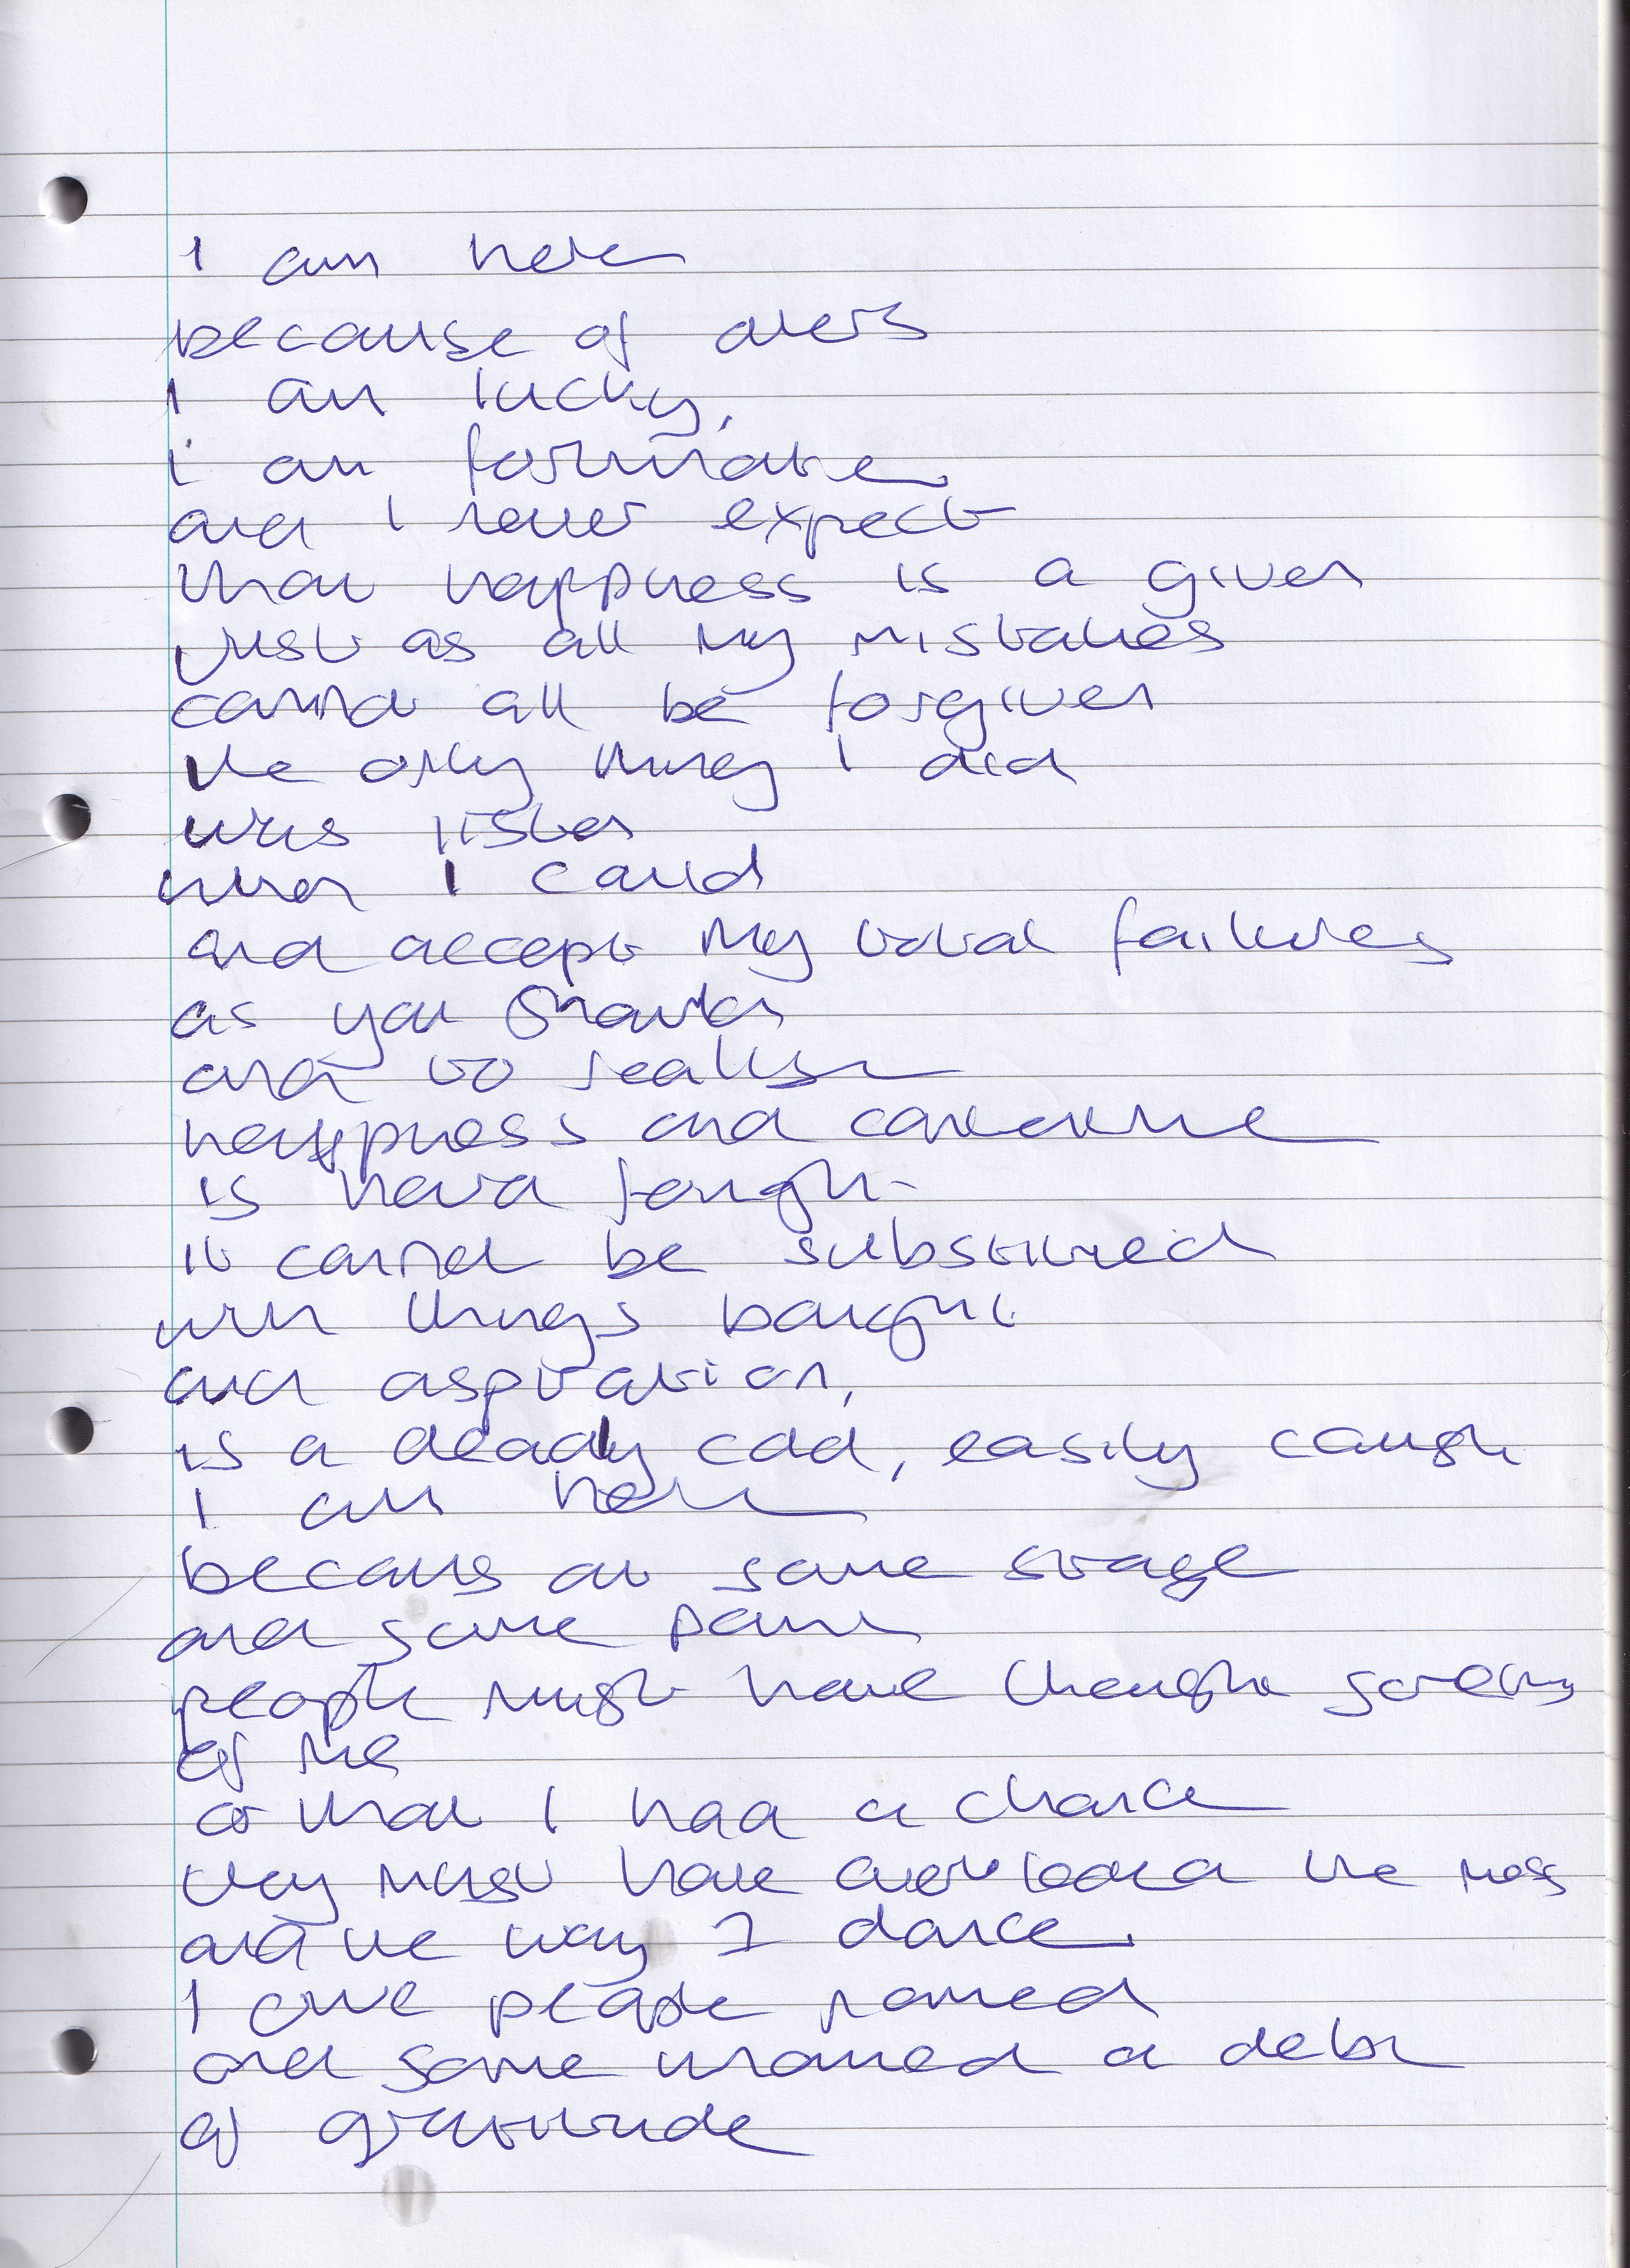 I am here
because of others
I am lucky,
i am fortunate
and I never expect
that happiness is a given
just as all my mistakes
cannot all be forgiven
the only thing I did
was listen
when I could
and accept my total failures
as you should
and to realise
happiness and
is hard fought
it cannot be substituted
with things bought
and aspiration,
is a deadly cold, easily caught
I am here
because at some stage
and some point
people must have thought something
of me
or that I had a chance
they must have overlooked the mess
and the way I dance.
I owe people named
and some unnamed a debt
of gratitude